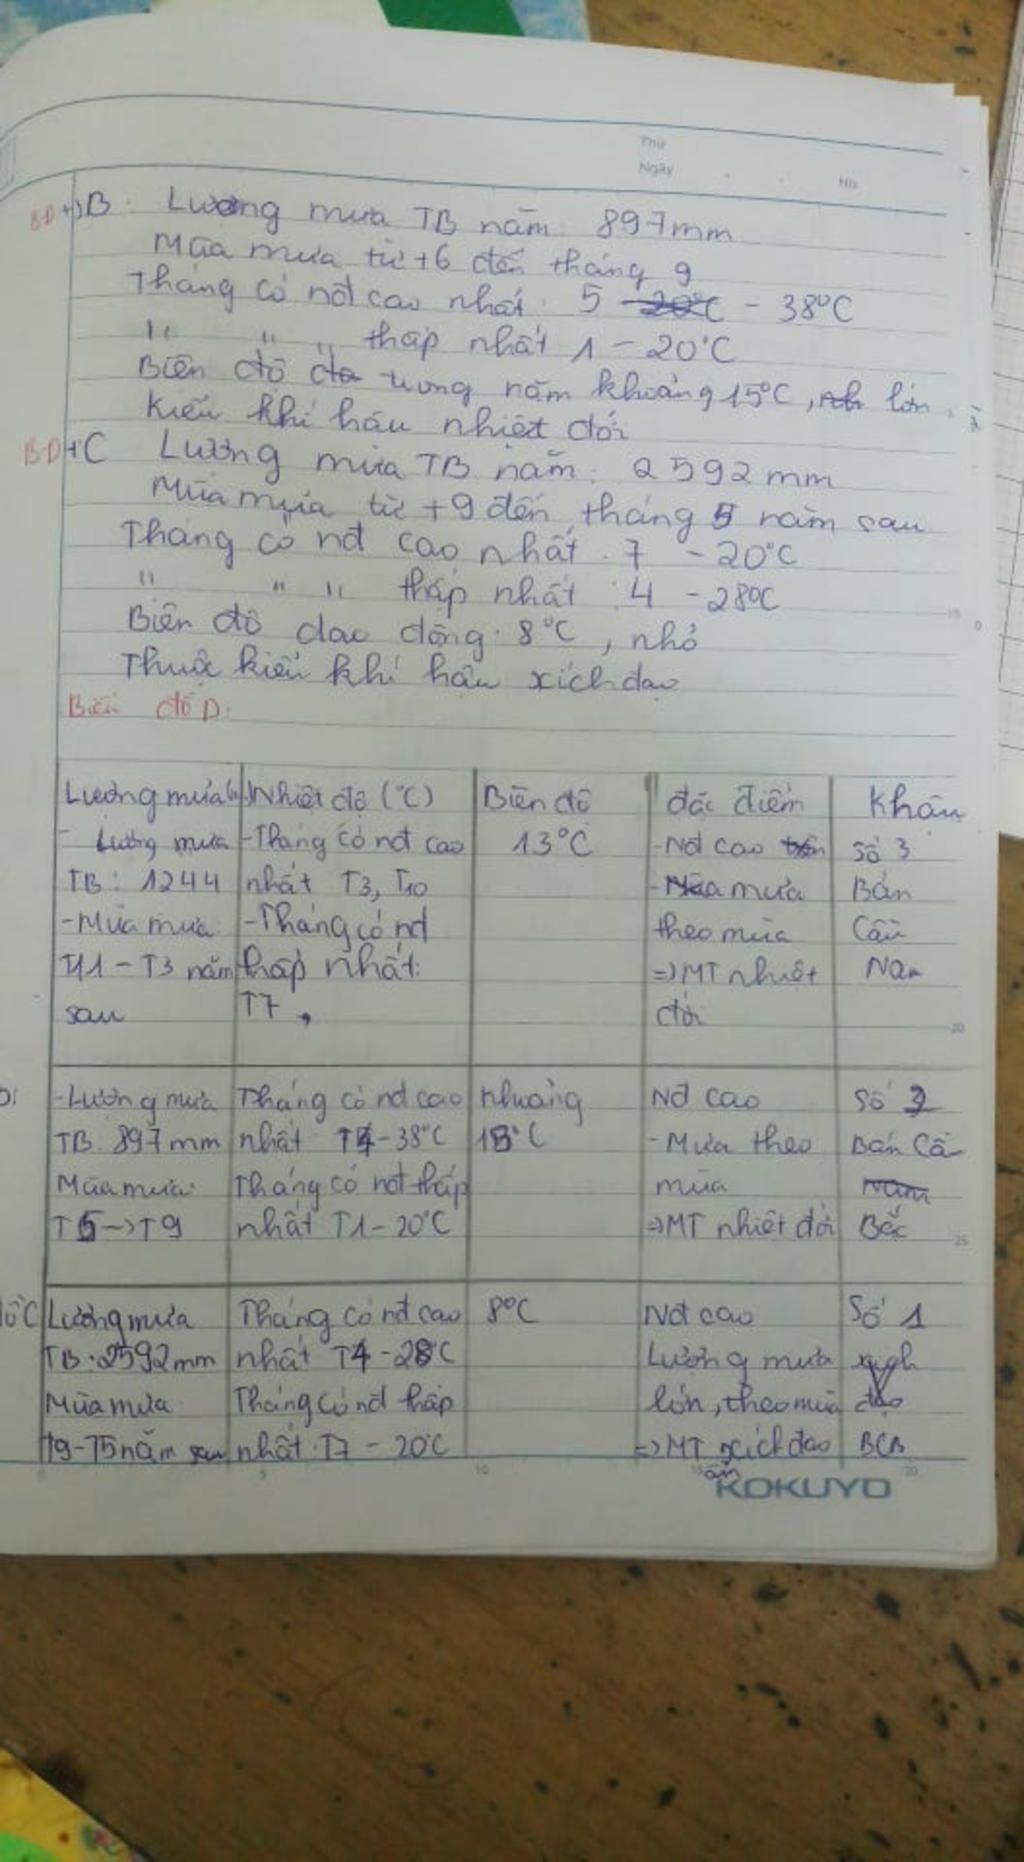 Thứ
Ngày
No
B-D +) B: Lượng mưa TB năm: 897mm
Mùa mưa từ t6 đến tháng 9
Tháng có nđ cao nhất: 5 - 38°C
" " " thấp nhất 1 - 20°C
Biên độ trong năm khoảng 15°C, lớn.
Kiểu khí hậu nhiệt đới
B-D + C Lượng mưa TB năm: 2592 mm
Mùa mưa từ t9 đến tháng 5 năm sau
Tháng có nđ cao nhất: 7 - 20°C
" " " thấp nhất: 4 - 28°C
Biên độ dao động: 8°C, nhỏ
Thuộc kiểu khí hậu xích đạo
Biểu đồ D:
Lượng mưa Nhiệt độ (°C) Biên độ đặc điểm Khớp
- Lượng mưa -Tháng có nđ cao 13°C -Nđ cao Số 3
TB: 1244 nhất T3, T10 - mưa Bán
-Mùa mưa: -Tháng có nđ theo mùa Cầu
T11 - T3 năm thấp nhất: => MT nhiệt Nam
sau T7 đới
-Lượng mưa Tháng có nđ cao khoảng Nđ cao Số 2
TB: 897mm nhất T4-38°C 18°C -Mưa theo Bán Cầ
Mùa mưa: Tháng có nđ thấp mùa Nam
T5->T9 nhất T1-20°C => MT nhiệt đới Bắc
Lượng mưa Tháng có nđ cao 8°C Nđ cao Số 1
TB: 2592mm nhất T4-28°C Lượng mưa xích
Mùa mưa Tháng có nđ thấp lớn, theo mùa đạo
T9-T5 năm sau nhất: T7 - 20°C => MT xích đạo BCB
ẩm
KOKUYO